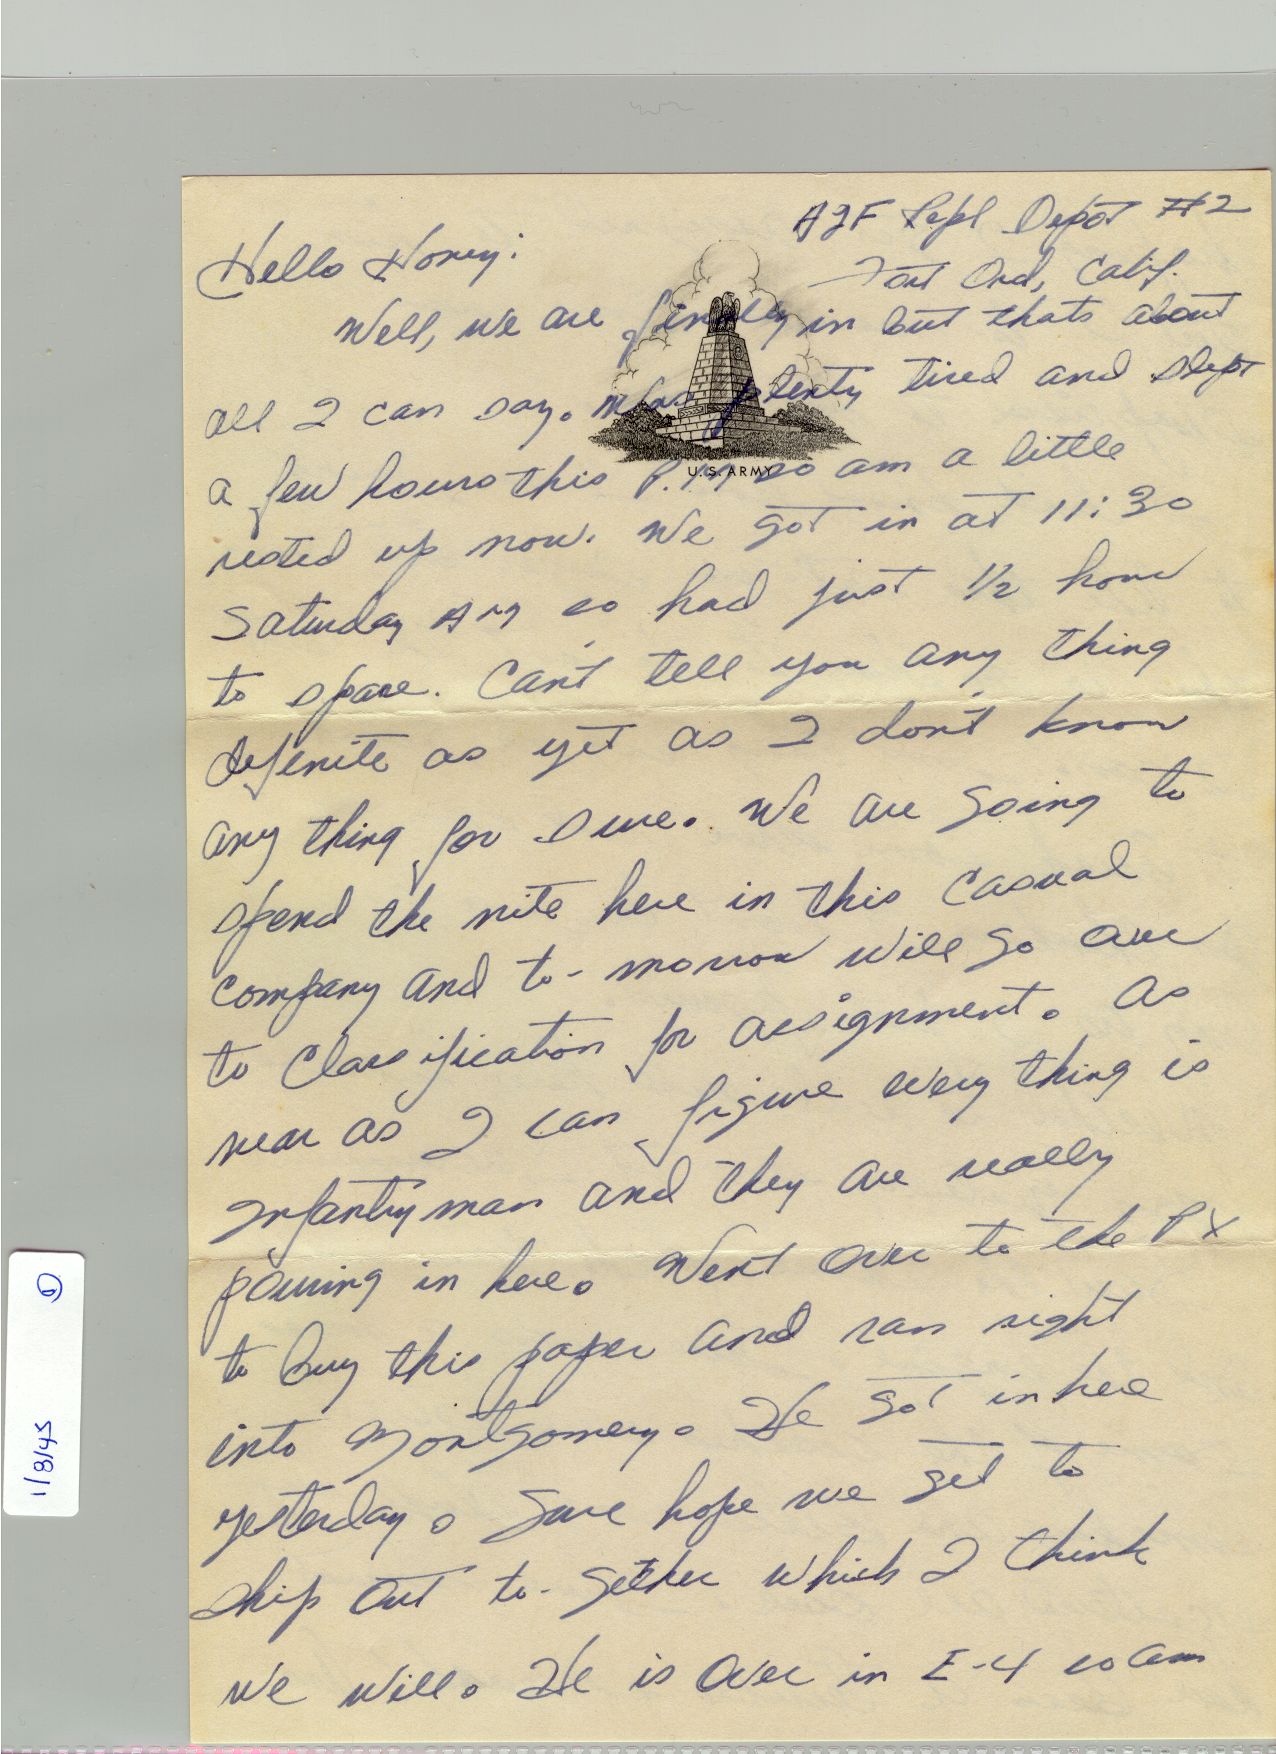 AGF Repl Depot #2
Fort Ord, Calif.
Hello Honey:
Well, we are finally in but thats about
all I can say. Was plenty tired and slept
a few hours this P.M. so am a little
U.S. ARMY
rested up now. We got in at 11:30
Saturday AM so had just 1/2 hour
to spare. Can't tell you any thing
defenite as yet as I don't know
any thing for sure. We are going to
spend the nite here in this casual
company and to-morrow will go over
to Classification for assignment. As
near as I can figure every thing is
Infantry man and they are really
pouring in here. Went over to the PX
to buy this paper and ran right
into Montgomery. He got in here
yesterday. Sure hope we get to
ship out to-gether which I think
we will. He is over in E-4 so am
1/8/45
①